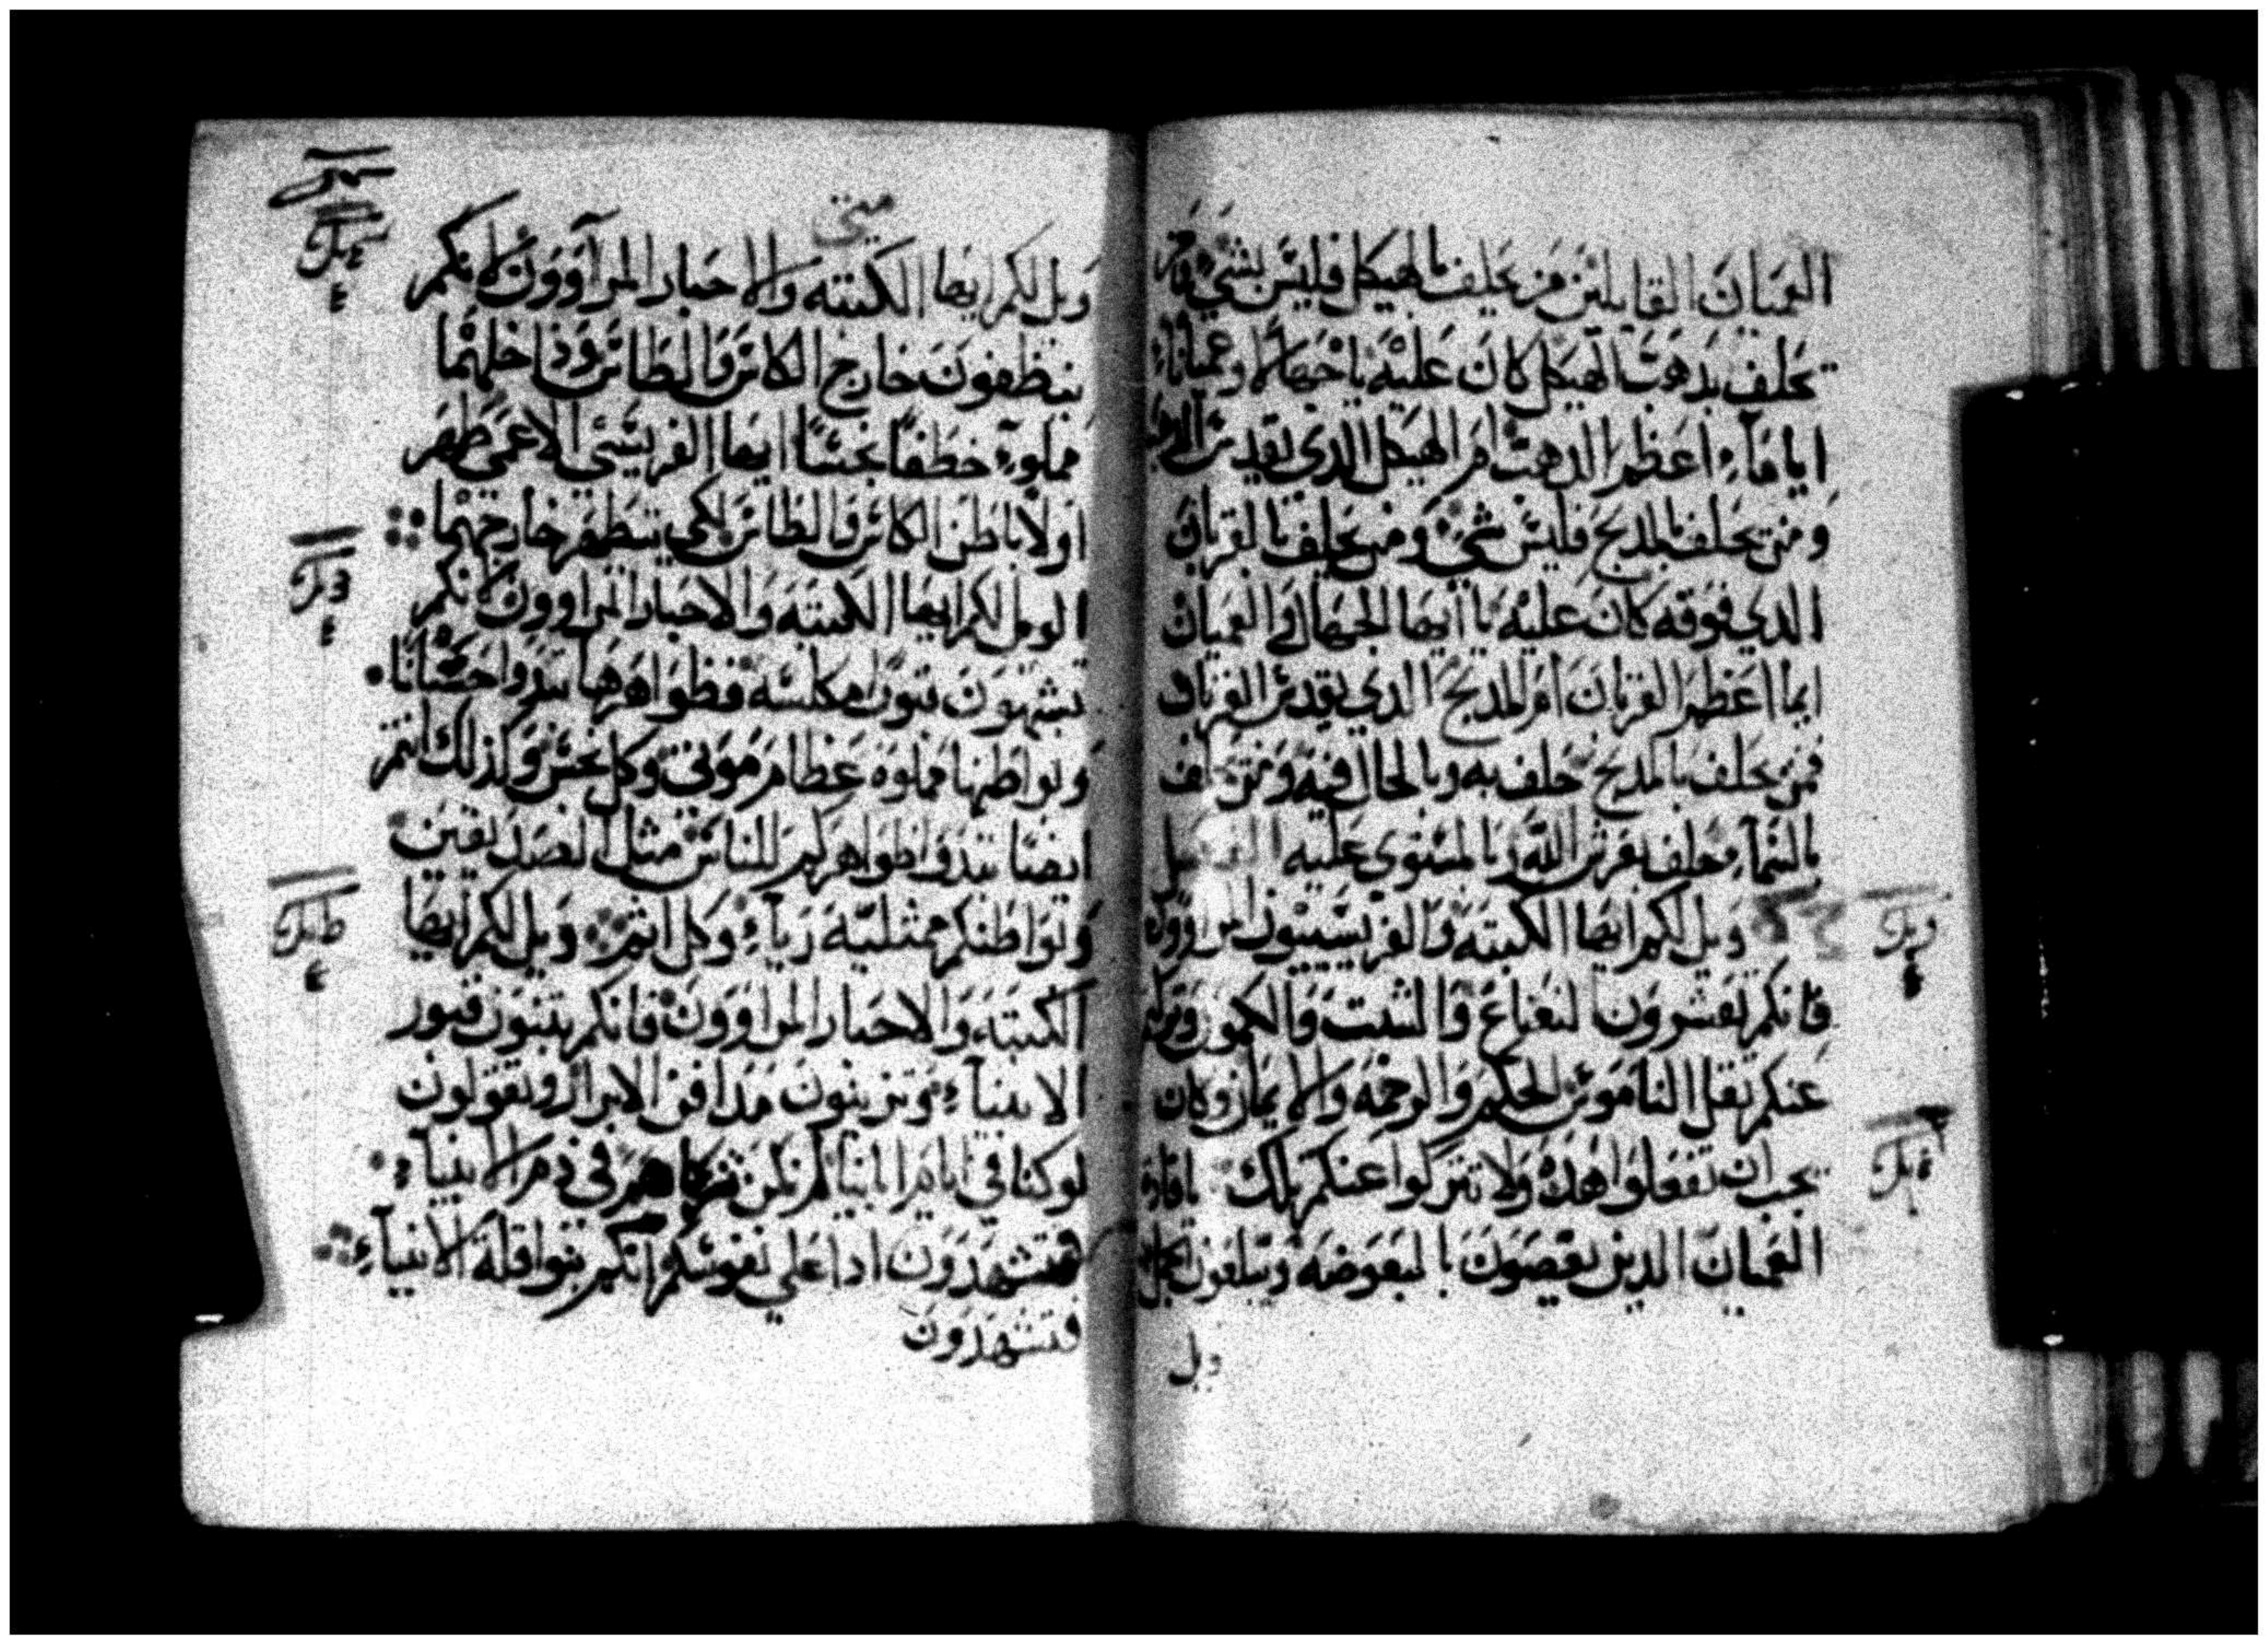 العميان القايلين من يحلف بالهيكل فليس بشي فامن
يحلف بدهب الهيكل كان عليه ياجهالا وعميانا
ايما اعظم الدهب ام الهيكل الدي يقدس الدهب
ومن يحلف بالمدبح فليس شي ومن يحلف بالقربان
الدي فوقه كان عليه يا ايها الجهال والعميان
ايما اعظم القربان ام المدبح الدي يقدس القربان
فمن يحلف بالمدبح حلف به وبالحال فيه ومن يحلف
بالسماء حلف بعرش الله وبالمستوي عليه
ويل لكم ايها الكتبه والفريسييون المراوون
فانكم تعشرون النعناع والشبت والكمون وترك
عنكم ثقل الناموس الحكم والرحمه والايمان وكان
يجب ان تفعلوا هدا ولا تتركوا عنكم تلك ياقادة
العميان الدين يعصون بالبعوضه ويبلعون الجمل
ويل
متي
ويل لكم ايها الكتبه والاحبار المرآوون لانكم
ينظفون خارج الكاس والطاس وداخلهما
مملوء خطفا نجسا ايها الفريسي الاعمي طهر
اولا باطن الكاس والطاس لكي يتطهر خارجهما
الويل لكم ايها الكتبه والاحبار المراوون لانكم
تشبهون بيوتا مكلسه فظواهرها تبدوا حسنا
وبواطنها مملوه عظام موتي وكل نجس وكدلك انتم
ايضا تبدوا ظواهركم للناس مثل الصديقين
وبواطنكم ممتليه رياء وكل اثم ويل لكم ايها
الكتبه والاحبار المراوون فانكم تبنون قبور
الانبياء وتزينون مدافن الابرار وتقولون
لو كنا في ايام ابانيا لم نكن شركاهم في دم الانبياء
فتشهدون ادا علي نفوسكم انكم بنوا قتلة الانبياء
فتشهدون